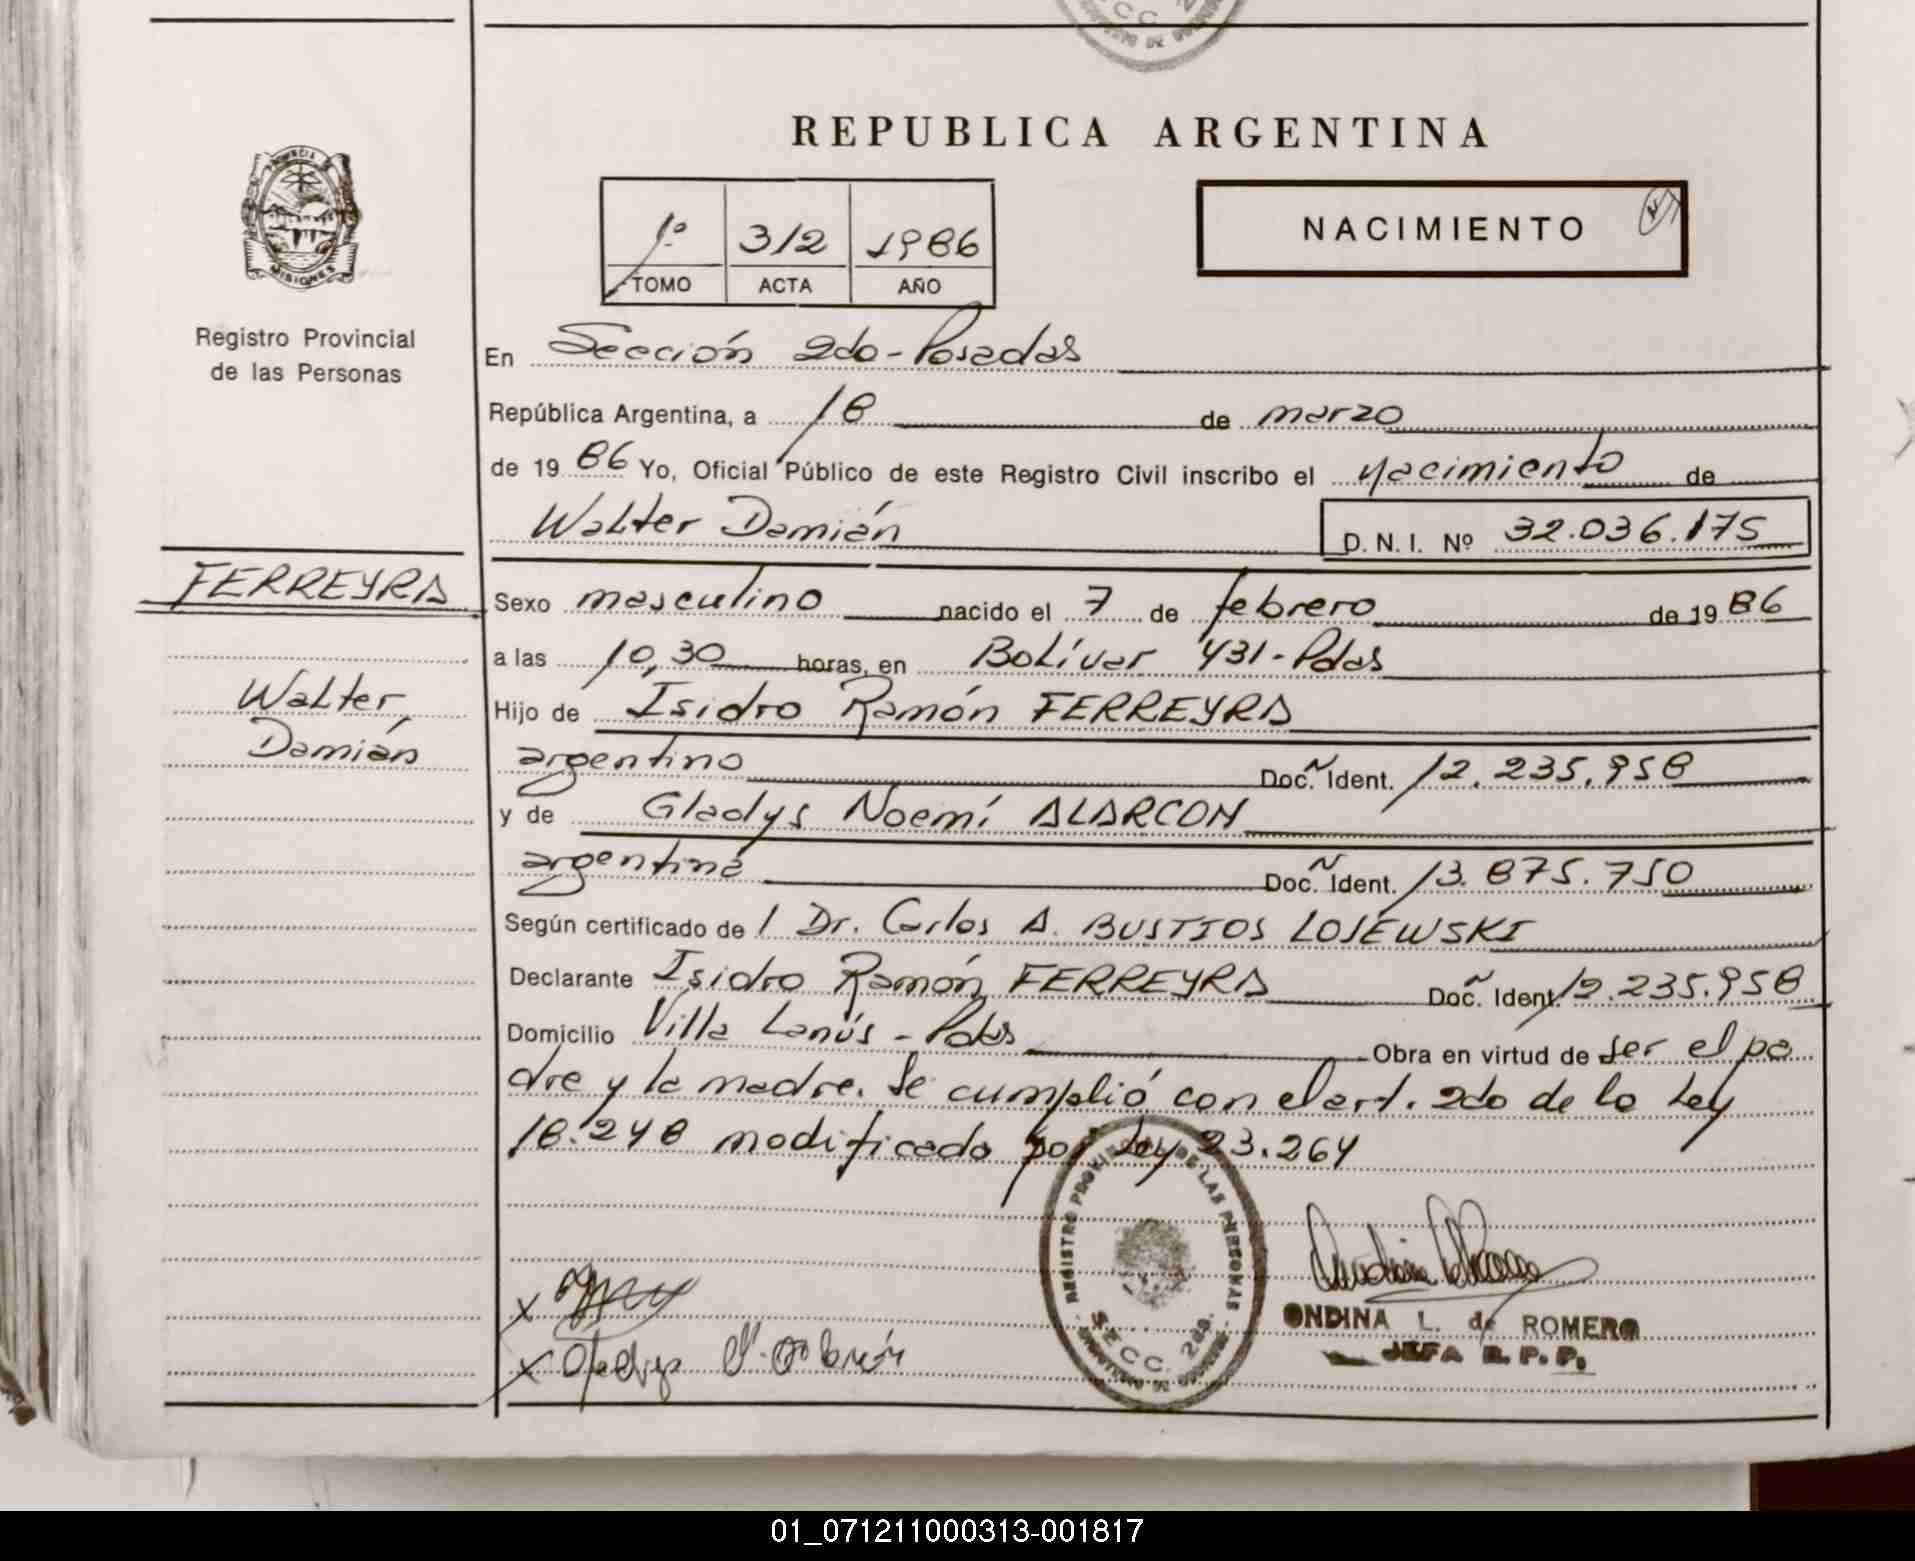 SECC. 2
REPUBLICA ARGENTINA
PROVINCIA DE
MISIONES
Registro Provincial
de las Personas
1º 312 1986
TOMO ACTA AÑO
NACIMIENTO
En Sección 2do-Posadas
República Argentina, a 18 de marzo
de 19 86 Yo, Oficial Público de este Registro Civil inscribo el nacimiento de
Walter Damián D. N. I. Nº 32.036.175
FERREYRA
Walter
Damián
Sexo masculino nacido el 7 de febrero de 19 86
a las 10,30 horas, en Bolívar 431-Pdas
Hijo de Isidro Ramón FERREYRA
argentino Doc. Ident. 12.235.958
y de Gladys Noemí ALARCON
argentina Doc. Ident. 13.875.750
Según certificado de l Dr. Carlos A. BUSTIOS LOSEWSKI
Declarante Isidro Ramón FERREYRA Doc. Ident. 12.235.958
Domicilio Villa Lanús - Pdas Obra en virtud de ser el pa
dre y la madre. Se cumplió con el art. 2do de la Ley
18.248 modificado por Ley 23.264
REGISTRO PROVINCIAL DE LAS PERSONAS
SECC. 2da.
ONDINA L. de ROMERO
JEFA R. P. P.
x
x Gladys
01_071211000313-001817